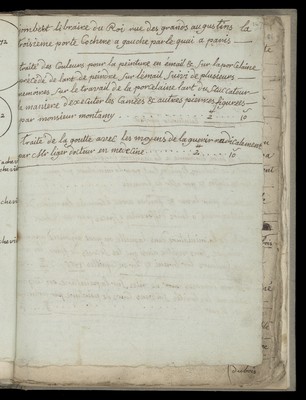 ombert libraire du Roi rue des grands augustins la
troisieme porte Cochere a gauche par le quai a paris
traité des Couleurs pour la peinture en émail & sur la porcelaine
précédé de l'art de peindre sur l'émail, suivi de plusieurs
mémoires, sur le travail de la porcelaine l'art du Stucateur
la maniere d'executer les Camées & autres pierres figurées
par monsieur montamy 2 10
Traité de la goutte avec les moyens de la guerir radicalement
par Mr liger docteur en medecine 2 10
dubois